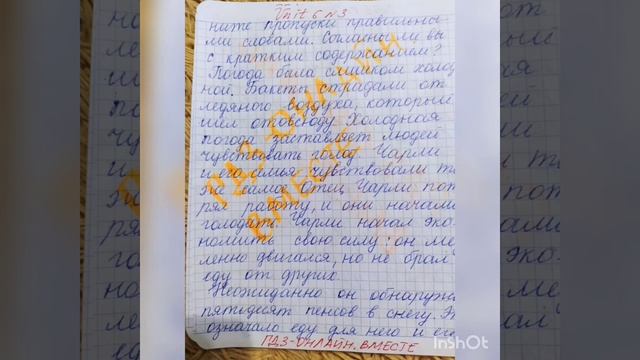 Unit 6 N3
ните пропуски правильны
ми словами. Согласны ли вы
с кратким содержанием?
Погода была слишком холод
ной. Бакеты страдали от
ледяного воздуха, который
шел отовсюду. Холодная
погода заставляет людей
чувствовать голод. Чарли
и его семья чувствовали то
же самое. Отец Чарли поте
рял работу, и они начали
голодать. Чарли начал эко-
номить свою силу: он ме
ленно двигался, но не брал
еду от других.
Неожиданно он обнаружи
пятьдесят пенсов в снегу. Э
означало еду для него и его
ГДЗ-ОНЛАЙН.ВМЕСТЕ
ГДЗ-ОНЛАЙН
ВМЕСТЕ
InShOt